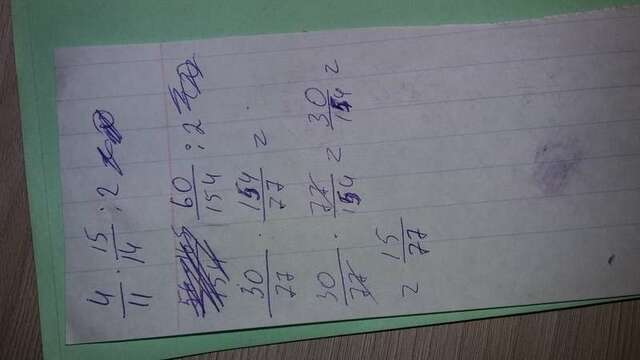 4/11 · 15/14 : 2
60/154 : 2
30/77 · 154/77 =
30/77 · 77/154 = 30/154 =
= 15/77